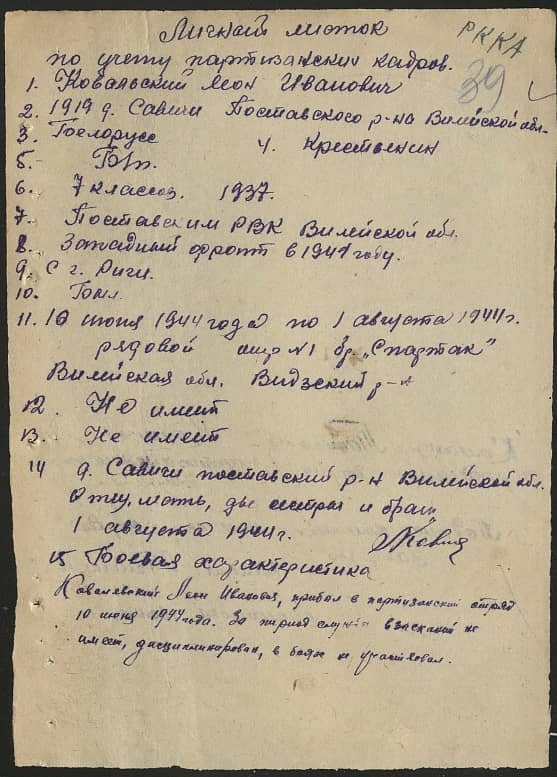 Личный листок
РККА
по учету партизанских кадров.
39
1. Ковальский Леон Иванович
2. 1919 д. Савичи Поставского р-на Вилейской обл.
3. Белорусс 4. Крестьянин
5. Б/п.
6. 7 классов. 1937.
7. Поставским РВК Вилейской обл.
8. Западный фронт в 1941 году.
9. С г. Риги.
10. Был.
11. 10 июня 1944 года по 1 августа 1944 г.
рядовой отр №1 бр. „Спартак"
Вилейская обл. Видзский р-н
12. Не имеет
13. Не имеет
14 д. Савичи поставский р-н Вилейской обл.
Отец, мать, две сестры и брат
1 августа 1944 г.
15 Боевая характеристика
Ковалевский Леон Иванович, прибыл в партизанский отряд
10 июня 1944 года. За период службы взысканий не
имеет, дисциплинирован, в боях не участвовал.